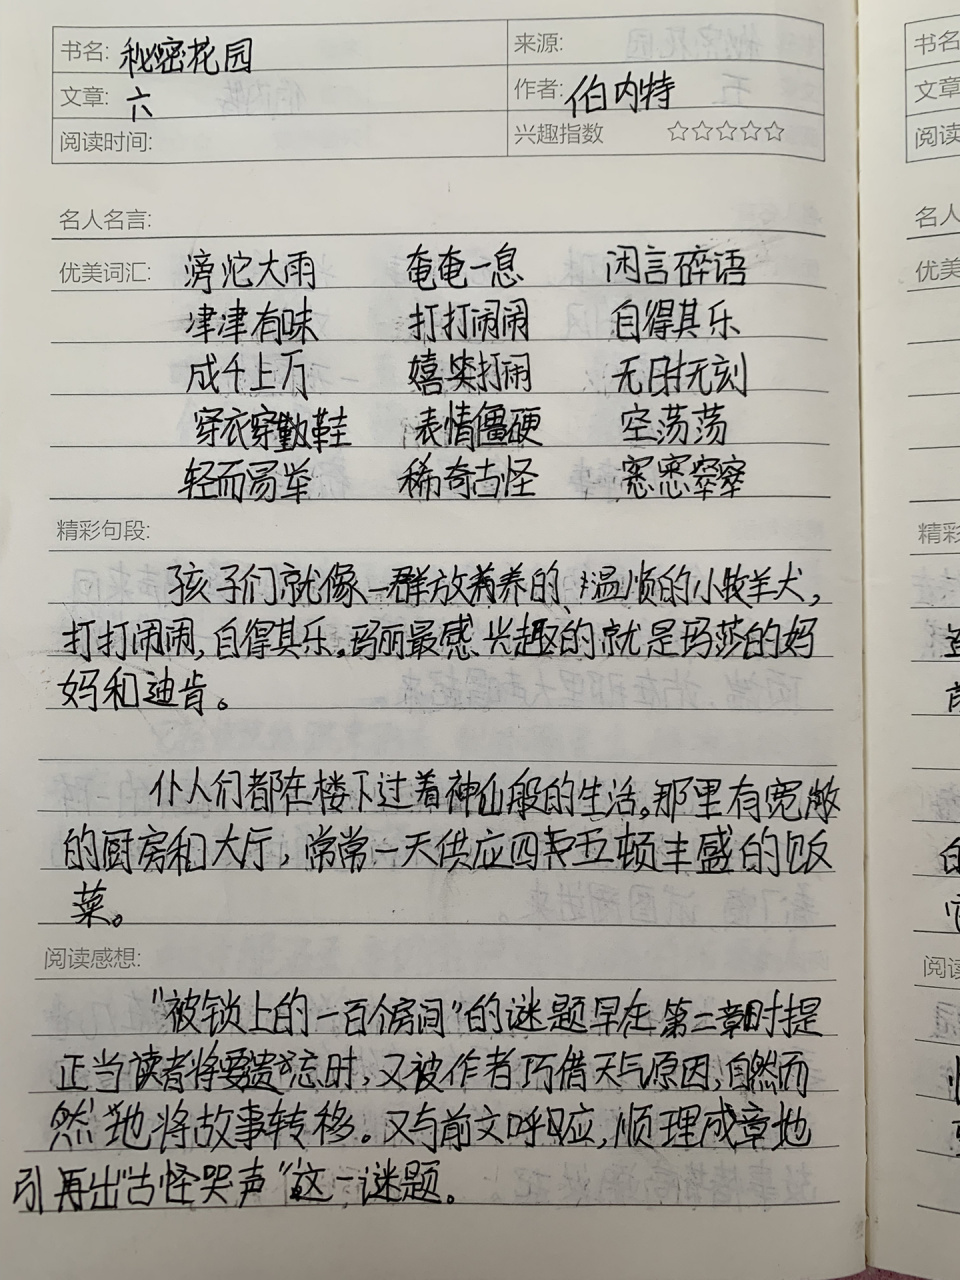 书名: 秘密花园 来源:
文章: 六 作者: 伯内特
阅读时间: 兴趣指数 ☆☆☆☆☆
名人名言:
优美词汇: 滂沱大雨 奄奄一息 闲言碎语
津津有味 打打闹闹 自得其乐
成千上万 嬉笑打闹 无时无刻
穿衣穿鞋 表情僵硬 空荡荡
轻而易举 稀奇古怪 窸窸窣窣
精彩句段:
孩子们就像一群放养的、温顺的小牧羊犬,
打打闹闹,自得其乐。玛丽最感兴趣的就是玛莎的妈
妈和迪肯。
仆人们都在楼下过着神仙般的生活。那里有宽敞
的厨房和大厅,常常一天供应四五顿丰盛的饭
菜。
阅读感想:
"被锁上的一百个房间"的谜题早在第二章时提
正当读者将要遗忘时,又被作者巧借天气原因,自然而
然地将故事转移。又与前文呼应,顺理成章地
引再出"古怪哭声"这一谜题。
书名
文章
阅读
名人
优美
精彩
阅读